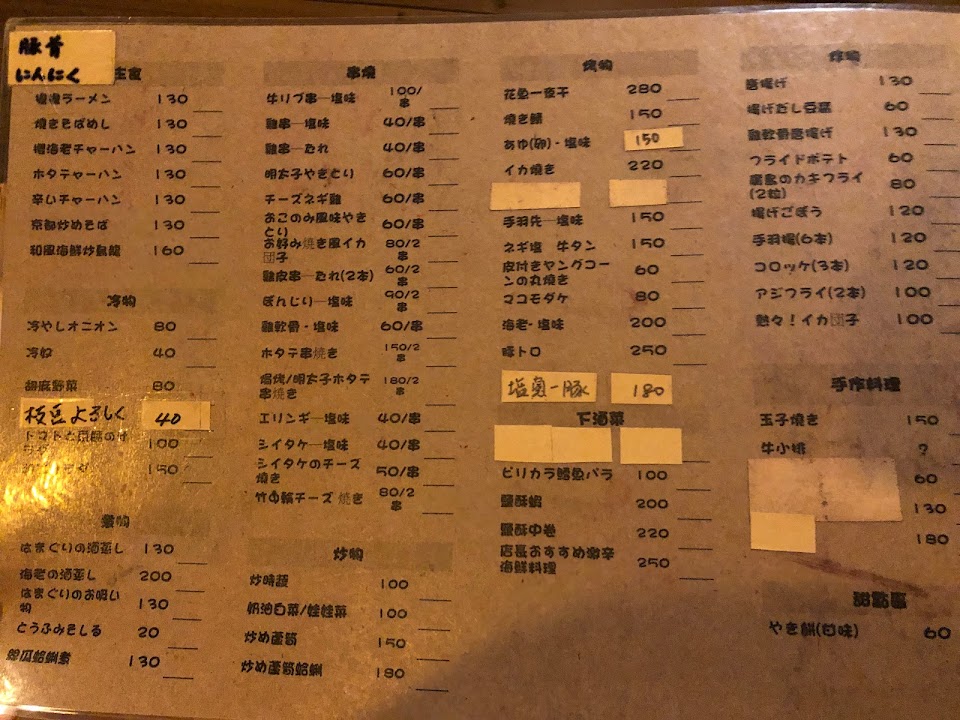 豚骨
にんにく
主食
ラーメン 130
焼きそばめし 130
桜海老チャーハン 130
ホタテチャーハン 130
辛いチャーハン 130
京都炒めそば 130
和風海鮮炒烏龍 160
冷物
冷やしオニオン 80
冷奴 40
胡麻野菜 80
枝豆よろしく 40
トマトと豆腐のサ
100
150
煮物
はまぐりの酒蒸し 130
海老の酒蒸し 200
はまぐりのお吸い
物 130
とうふみそしる 20
絲瓜蛤蜊煮 130
串燒
牛リブ串─塩味 100/
串
雞串─塩味 40/串
雞串─たれ 40/串
明太子やきとり 60/串
チーズネギ雞 60/串
おこのみ風味やき
とり 60/串
お好み焼き風イカ
団子 80/2
串
雞皮串─たれ(2本) 60/2
串
ぼんじり─塩味 90/2
串
雞軟骨・塩味 60/串
ホタテ串焼き 150/2
串
焗烤/明太子ホタテ
串焼き 180/2
串
エリンギ─塩味 40/串
シイタケ─塩味 40/串
シイタケのチーズ
焼き 50/串
竹中輪チーズ焼き 80/2
串
炒物
炒時蔬 100
奶油白菜/娃娃菜 100
炒め蘆筍 150
炒め蘆筍蛤蜊 180
烤物
花魚一夜干 280
焼き鯖 150
あゆ(卵)・塩味 150
イカ焼き 220
手羽先─塩味 150
ネギ塩 牛タン 150
皮付きヤングコー
ンの丸焼き 60
マコモダケ 80
海老・塩味 200
豚トロ 250
塩麹一豚 180
下酒菜
ピリカラ鱈魚バラ 100
鹽酥蝦 200
鹽酥中卷 220
店長おすすめ激辛
海鮮料理 250
炸物
唐揚げ 130
揚げだし豆腐 60
雞軟骨唐揚げ 130
フライドポテト 60
廣島のカキフライ
(2粒) 80
揚げごぼう 120
手羽揚(6本) 120
コロッケ(3本) 120
アジフライ(2本) 100
熱々！イカ団子 100
手作料理
玉子焼き 150
牛小排 ?
60
130
180
甜點區
やき餅(甘味) 60